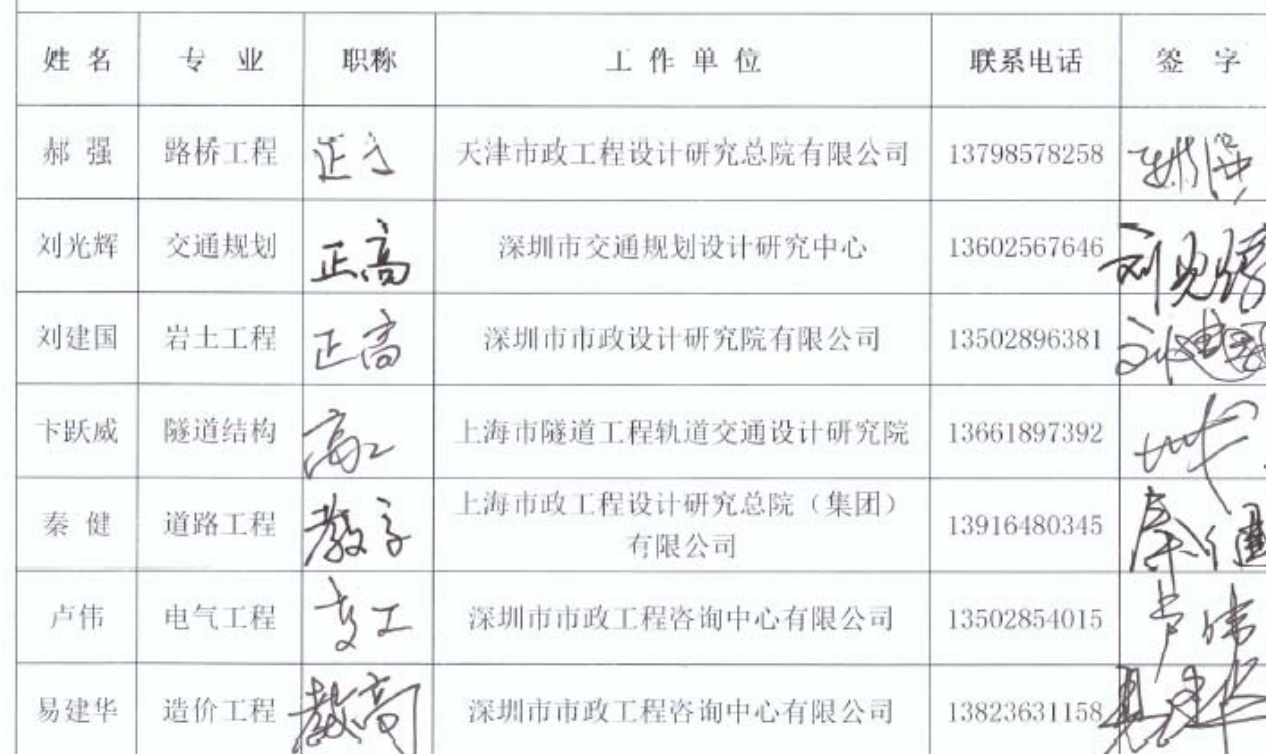 姓 名 专 业 职称 工 作 单 位 联系电话 签 字
郝 强 路桥工程 正高 天津市政工程设计研究总院有限公司 13798578258
刘光辉 交通规划 正高 深圳市交通规划设计研究中心 13602567646 刘光辉
刘建国 岩土工程 正高 深圳市市政设计研究院有限公司 13502896381 刘建国
卞跃威 隧道结构 高工 上海市隧道工程轨道交通设计研究院 13661897392
秦 健 道路工程 教高 上海市政工程设计研究总院（集团）
有限公司 13916480345 秦健
卢伟 电气工程 高工 深圳市市政工程咨询中心有限公司 13502854015 卢伟
易建华 造价工程 教高 深圳市市政工程咨询中心有限公司 13823631158 易建华